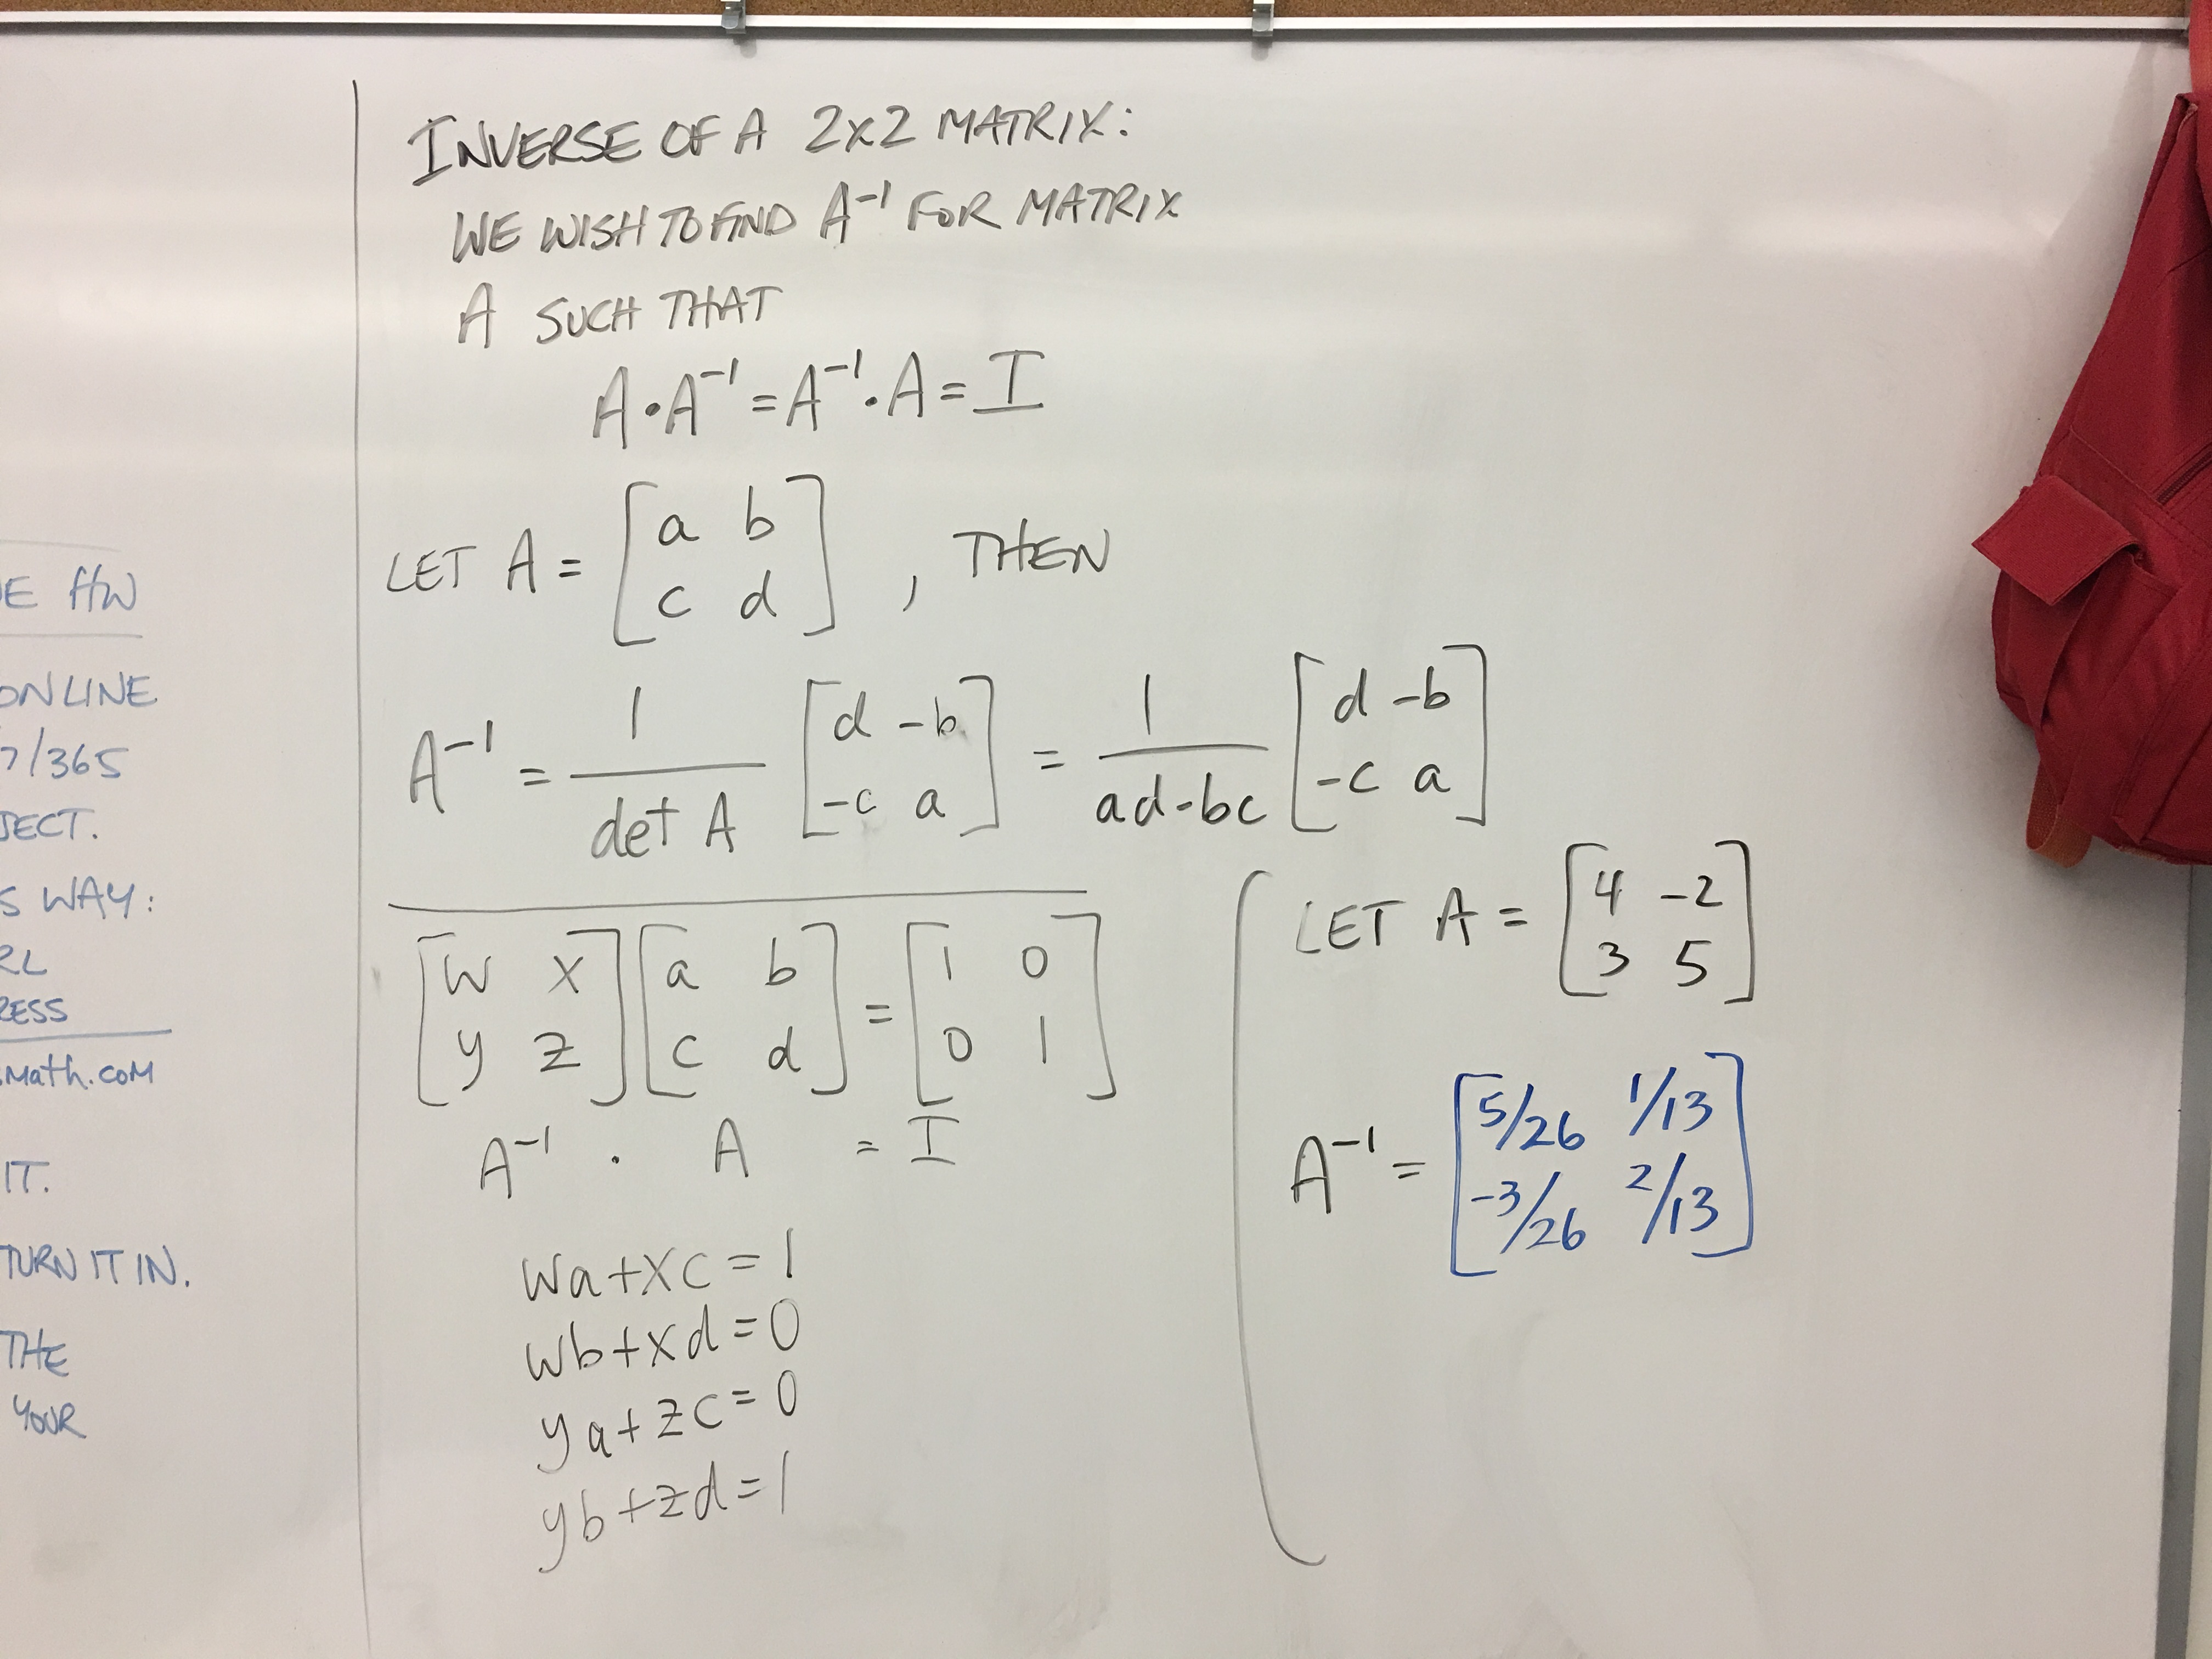 E HW
ONLINE
7/365
JECT.
S WAY:
RL
RESS
math.com
IT.
TURN IT IN.
THE
YOUR
INVERSE OF A 2x2 MATRIX:
WE WISH TO FIND A⁻¹ FOR MATRIX
A SUCH THAT
A·A⁻¹=A⁻¹·A=I
LET A = [a b
c d] , THEN
A⁻¹ = 1/det A [d -b
-c a] = 1/ad-bc [d -b
-c a]
[w x
y z][a b
c d]=[1 0
0 1]
A⁻¹ · A = I
wa+xc=1
wb+xd=0
ya+zc=0
yb+zd=1
LET A = [4 -2
3 5]
A⁻¹ = [5/26 1/13
-3/26 2/13]